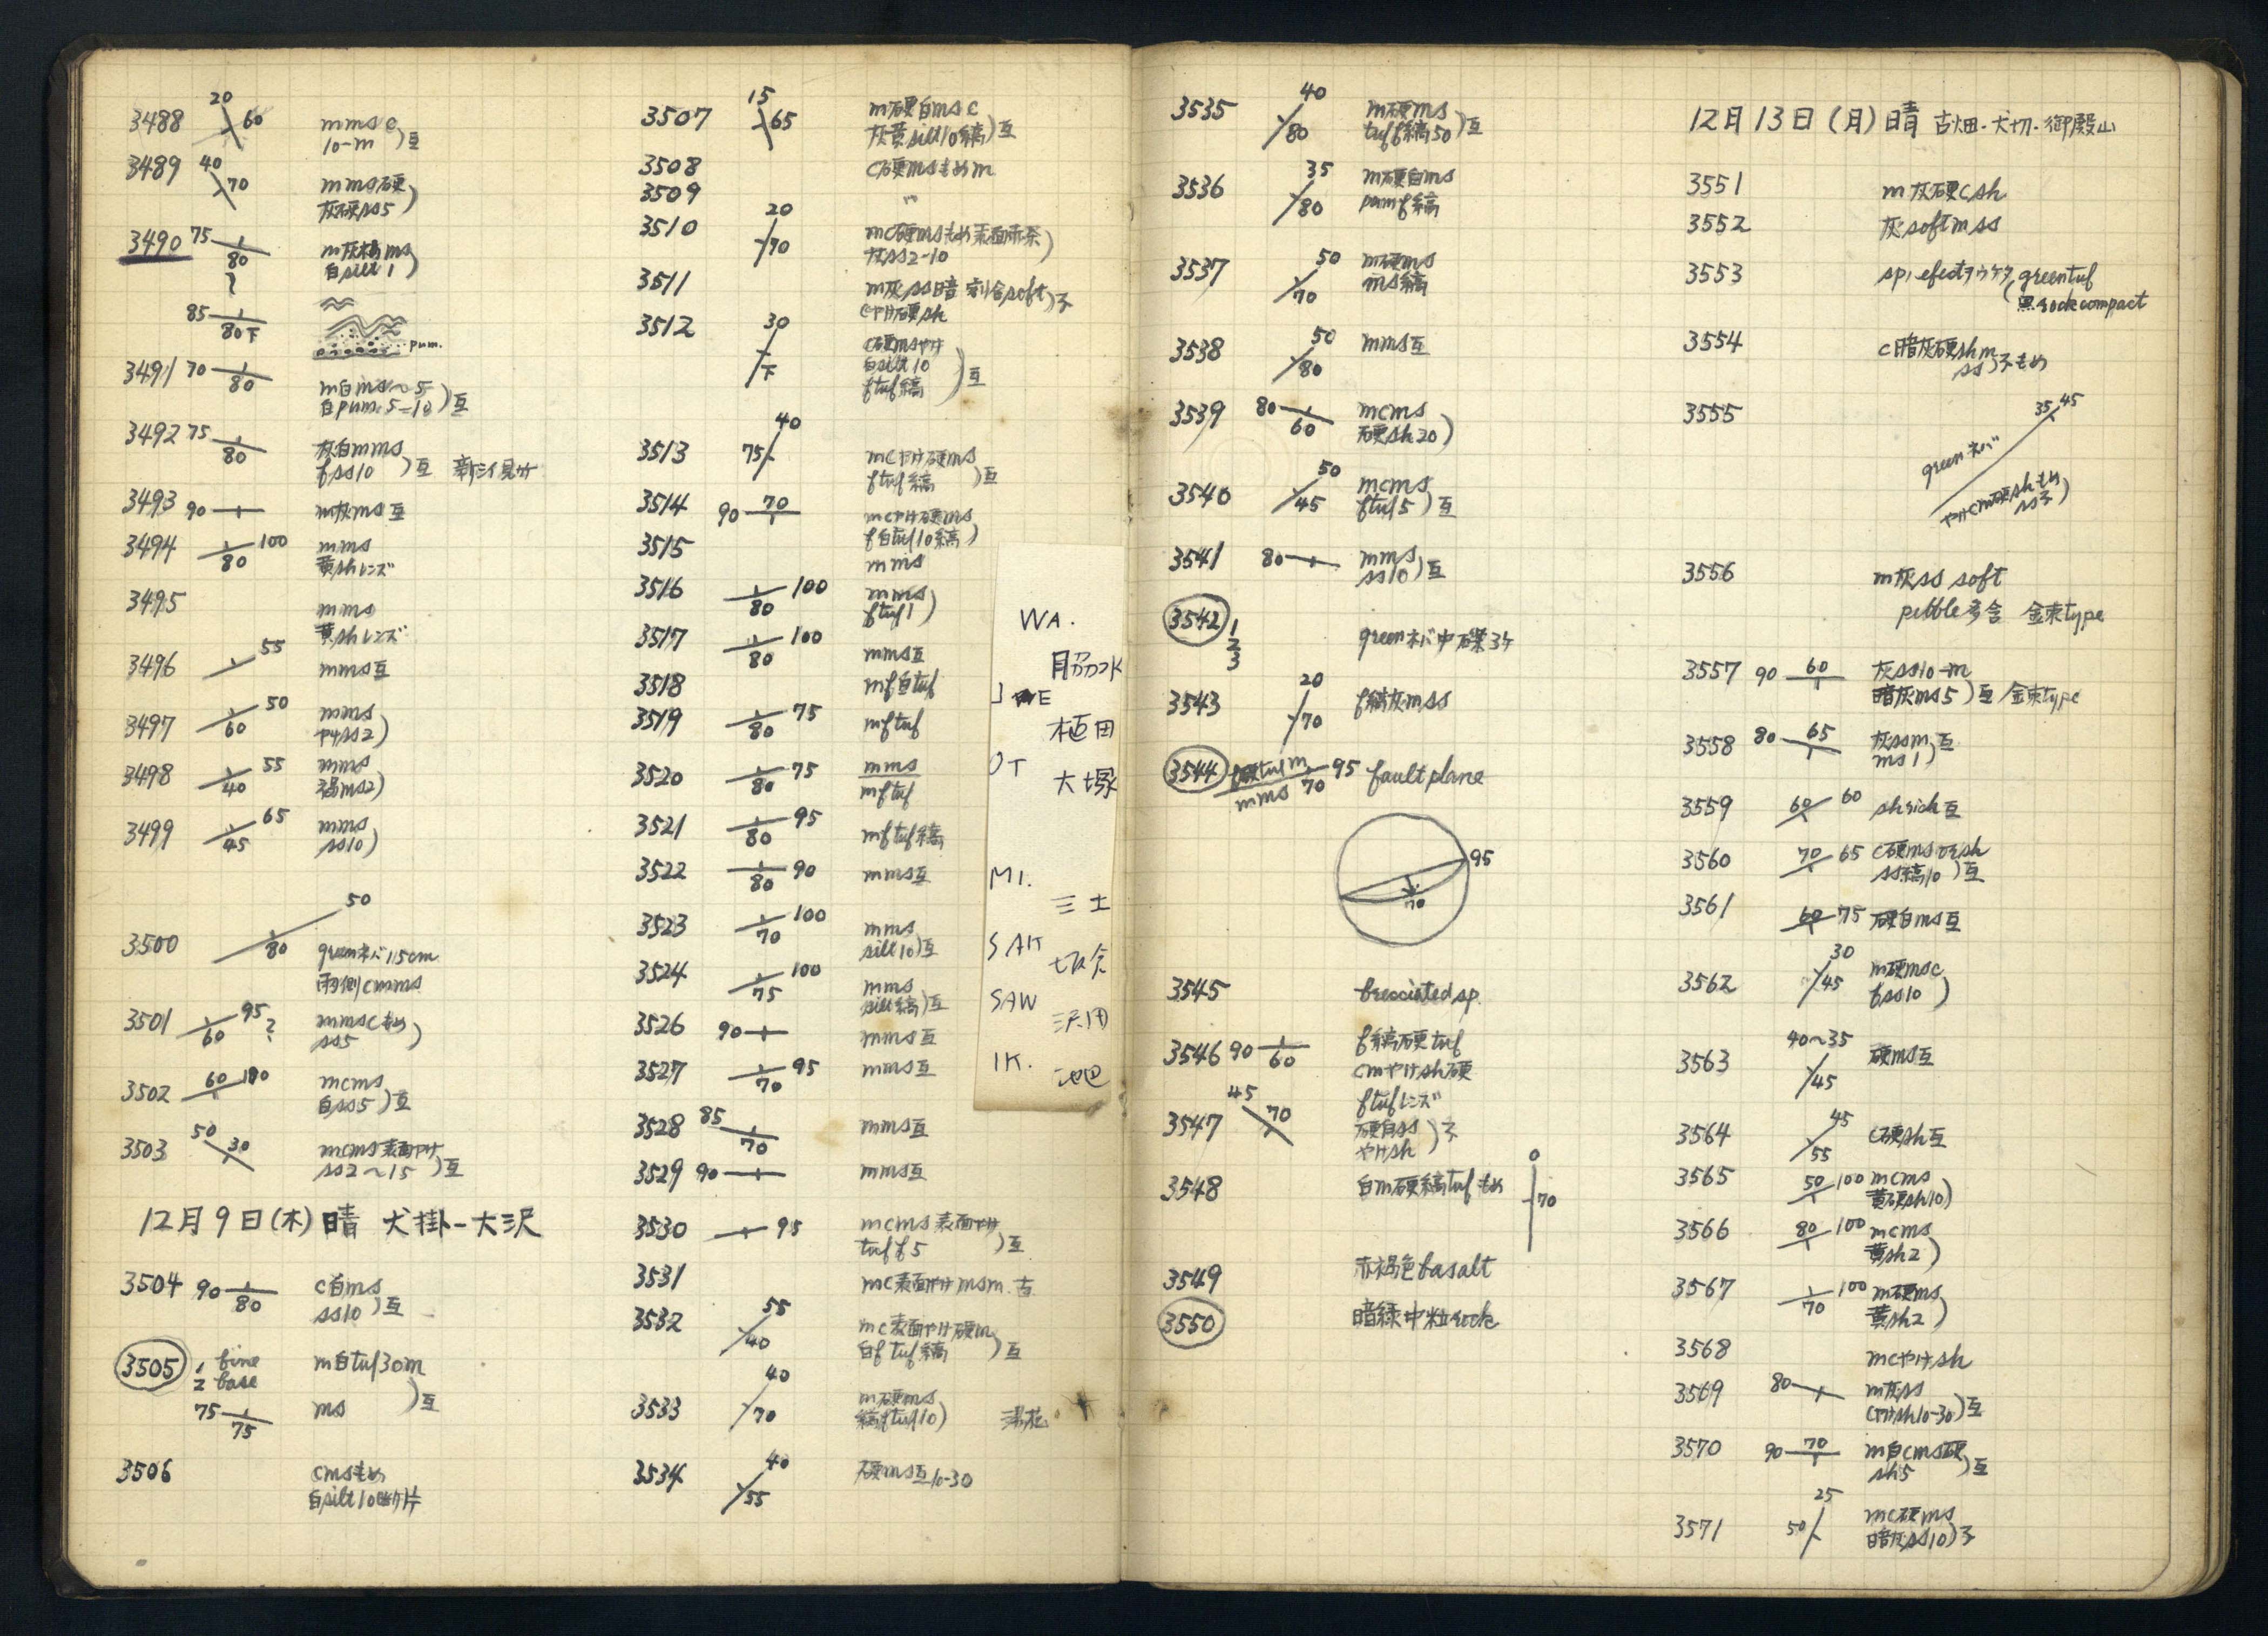 3488 20 60 mms c
10-m )互
3489 40 70 mms硬
灰硬ss5 )
3490 75 80 m灰褐ms
白silt 1 )
85 80下
pum.
3491 70 80 m白ms~5
白pum. 5-10 )互
3492 75 80 灰白mms
fss10 )互
3493 90 m灰ms互
3494 100 80 mms
黄shレンズ
3495 mms
黄shレンズ
3496 55 mms互
3497 50 60 mms
ヤケss2 )
3498 55 40 mms
褐ms2 )
3499 65 45 mms
ss10 )
3500 50 80 greenネバ115cm
両側cmms
3501 95? 60 mmscもめ
ss5 )
3502 60 100 mcms
白ss5 )互
3503 50 30 mcms表面ヤケ
ss2~15 )互
12月9日(木)晴 犬掛-大沢
3504 90 80 c白ms
ss10 )互
3505 1 fine m白tuf30m
2 base
75 75 ms )互
3506 cmsもめ
白silt10断片
3507 15 65 m硬白ms c
灰黄silt10縞 )互
3508 c硬msもめm
3509 〃
3510 20 70 mc硬msもめ表面赤茶
灰ss2-10 )
3511 m灰ss暗 割合soft
cヤケ硬sh
3512 30 下 c硬msヤケ
白silt10
ftuf縞 )互
3513 40 75 mcヤケ硬ms
ftuf縞 )互
3514 90 70 mcヤケ硬ms
f白tuf10縞 )
3515 mms
3516 100 80 mms
ftuf1 )
3517 100 80 mms互
3518 mf白tuf
3519 75 80 mftuf
3520 75 80 mms
mftuf
3521 95 80 mftuf縞
3522 90 80 mms互
3523 100 70 mms
silt10 )互
3524 100 75 mms
silt縞 )互
3526 90 mms互
3527 95 70 mms互
3528 85 70 mms互
3529 90 mms互
3530 95 mcms表面ヤケ
tuff5 )互
3531 mc表面ヤケmsm.古
3532 55 40 mc表面ヤケ硬m
白ftuf縞 )互
3533 40 70 m硬ms
縞ftuf10 )
3534 40 55 硬ms互10-30
WA.
脇水
植田
OT
大塚
MI.
三土
SAK
坂倉
SAW
沢田
IK.
池
3535 40 80 m硬ms
tuff縞50 )互
3536 35 80 m硬白ms
pumf縞
3537 50 70 m硬ms
ms縞
3538 50 80 mms互
3539 80 60 mcms
硬sh20 )
3540 50 45 mcms
ftuf5 )互
3541 80 mms
ss10 )互
3542 1 greenネバ中礫3ケ
2
3
3543 20 70 f縞灰mss
3544 95 70 fault plane
mms
95
70
3545 brecciated sp.
3546 90 60 f縞硬tuf
cmヤケsh硬
ftufレンズ
3547 45 70 硬白ss
ヤケsh )
3548 白m硬縞tufもめ 0 70
3549 赤褐色basalt
3550 暗緑中粒rock
12月13日(月)晴 古畑・犬切・御殿山
3551 m灰硬csh
3552 灰softmss
3553 spi efectヲウケタ greentuf
黒rockcompact
3554 c暗灰硬shm
ss もめ
3555 35 45
greenネバ
ヤケcm硬shもめ
3556 m灰ss soft
pebble多含 金束type
3557 90 60 灰ss10-m
暗灰ms5 )互 金束type
3558 80 65 灰ssm
ms1 )互
3559 60 60 shrich互
3560 70 65 c硬ms or sh
ss縞10 )互
3561 60 75 硬白ms互
3562 30 45 m硬msc
fss10 )
3563 40~35 45 硬ms互
3564 45 55 c硬sh互
3565 50 100 mcms
黄硬sh10 )
3566 80 100 mcms
黄sh2 )
3567 100 70 m硬ms
黄sh2 )
3568 mcヤケsh
3569 80 m灰ss
cヤケsh10-30 )互
3570 90 70 m白cms硬
sh5 )互
3571 25 50 mc硬ms
暗灰ss10 )